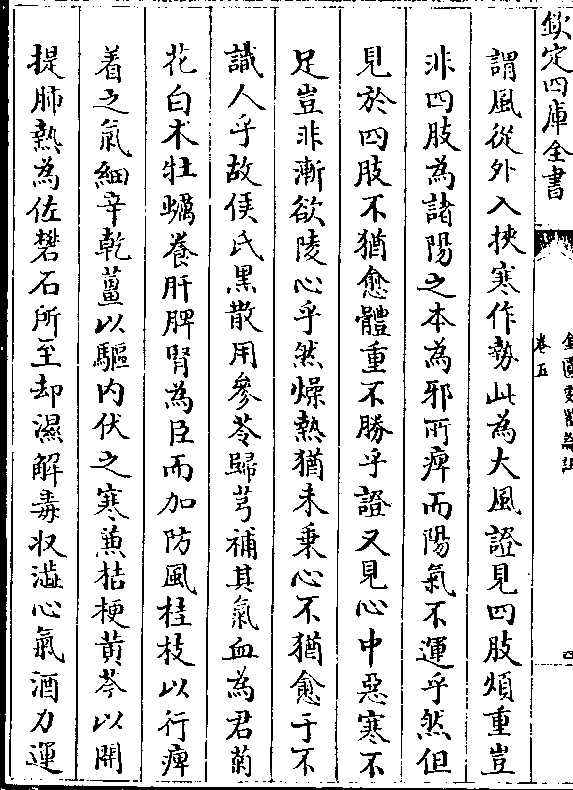 欽定四庫全書
卷五
謂風從外入挾寒作勢此為大風證見四肢煩重豈
非四肢為諸陽之本為邪所痺而陽氣不運乎然但
見於四肢不猶愈體重不勝乎證又見心中惡寒不
足豈非漸欲陵心乎然燥熱猶未乗心不猶愈于不
識人乎故侯氏黑散用參苓歸芎補其氣血為君菊
花白术牡蠣養肝脾腎為臣而加防風桂枝以行痺
着之氣細辛乾薑以驅内伏之寒兼桔梗黄芩以開
提肺熱為佐礬石所至却濕解毒收澁心氣酒力運